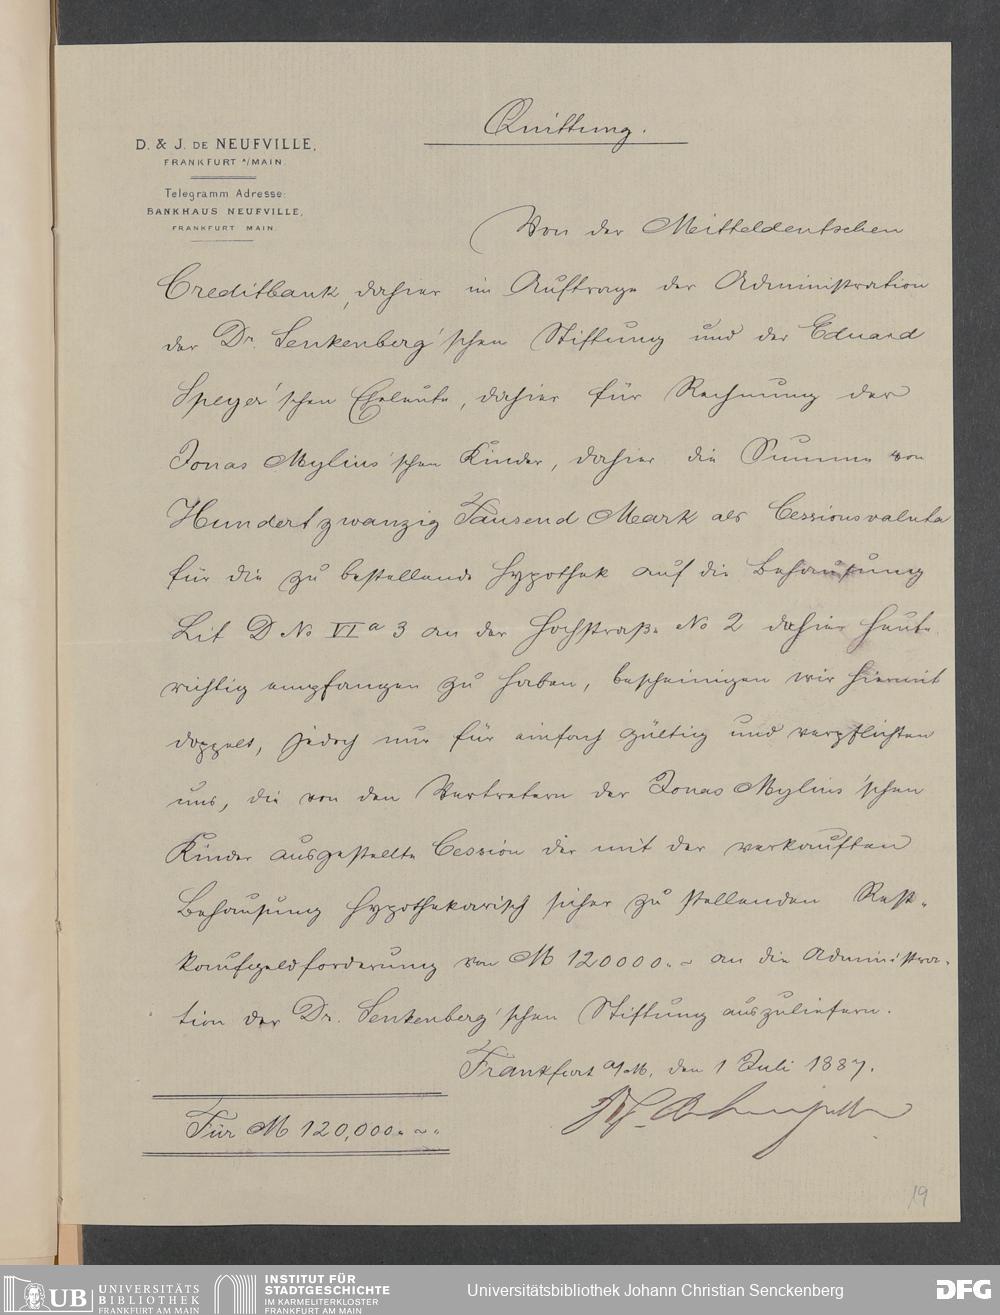 Quittung.
D. & J. DE NEUFVILLE,
FRANKFURT A/MAIN.
Telegramm Adresse:
BANKHAUS NEUFVILLE,
FRANKFURT MAIN.
Von der Mitteldeutschen
Creditbank, dahier im Auftrage der Administration
der Dr. Senkenberg'schen Stiftung und der Eduard
Speyer'schen Eheleute, dahier für Rechnung der
Jonas Mylius'schen Kinder, dahier die Summe von
Hundertzwanzig Tausend Mark als Cessionsvaluta
für die zu bestellende Hypothek auf die Behausung
Lit D No VIa 3 an der Hochstraße No 2 dahier heute
richtig empfangen zu haben, bescheinigen wir hiermit
doppelt, jedoch nur für einfach gültig und verpflichten
uns, die von den Vertretern der Jonas Mylius'schen
Kinder ausgestellte Cession der mit der verkauften
Behausung hypothekarisch sicher zu stellenden Rest-
kaufgeldforderung von M 120000.~ an die Administra-
tion der Dr. Senkenberg'schen Stiftung auszuliefern.
Frankfurt a/M, den 1 Juli 1887.
Für M 120,000.~.
19
UB UNIVERSITÄTS
BIBLIOTHEK
FRANKFURT AM MAIN
INSTITUT FÜR
STADTGESCHICHTE
IM KARMELITERKLOSTER
FRANKFURT AM MAIN
Universitätsbibliothek Johann Christian Senckenberg
DFG